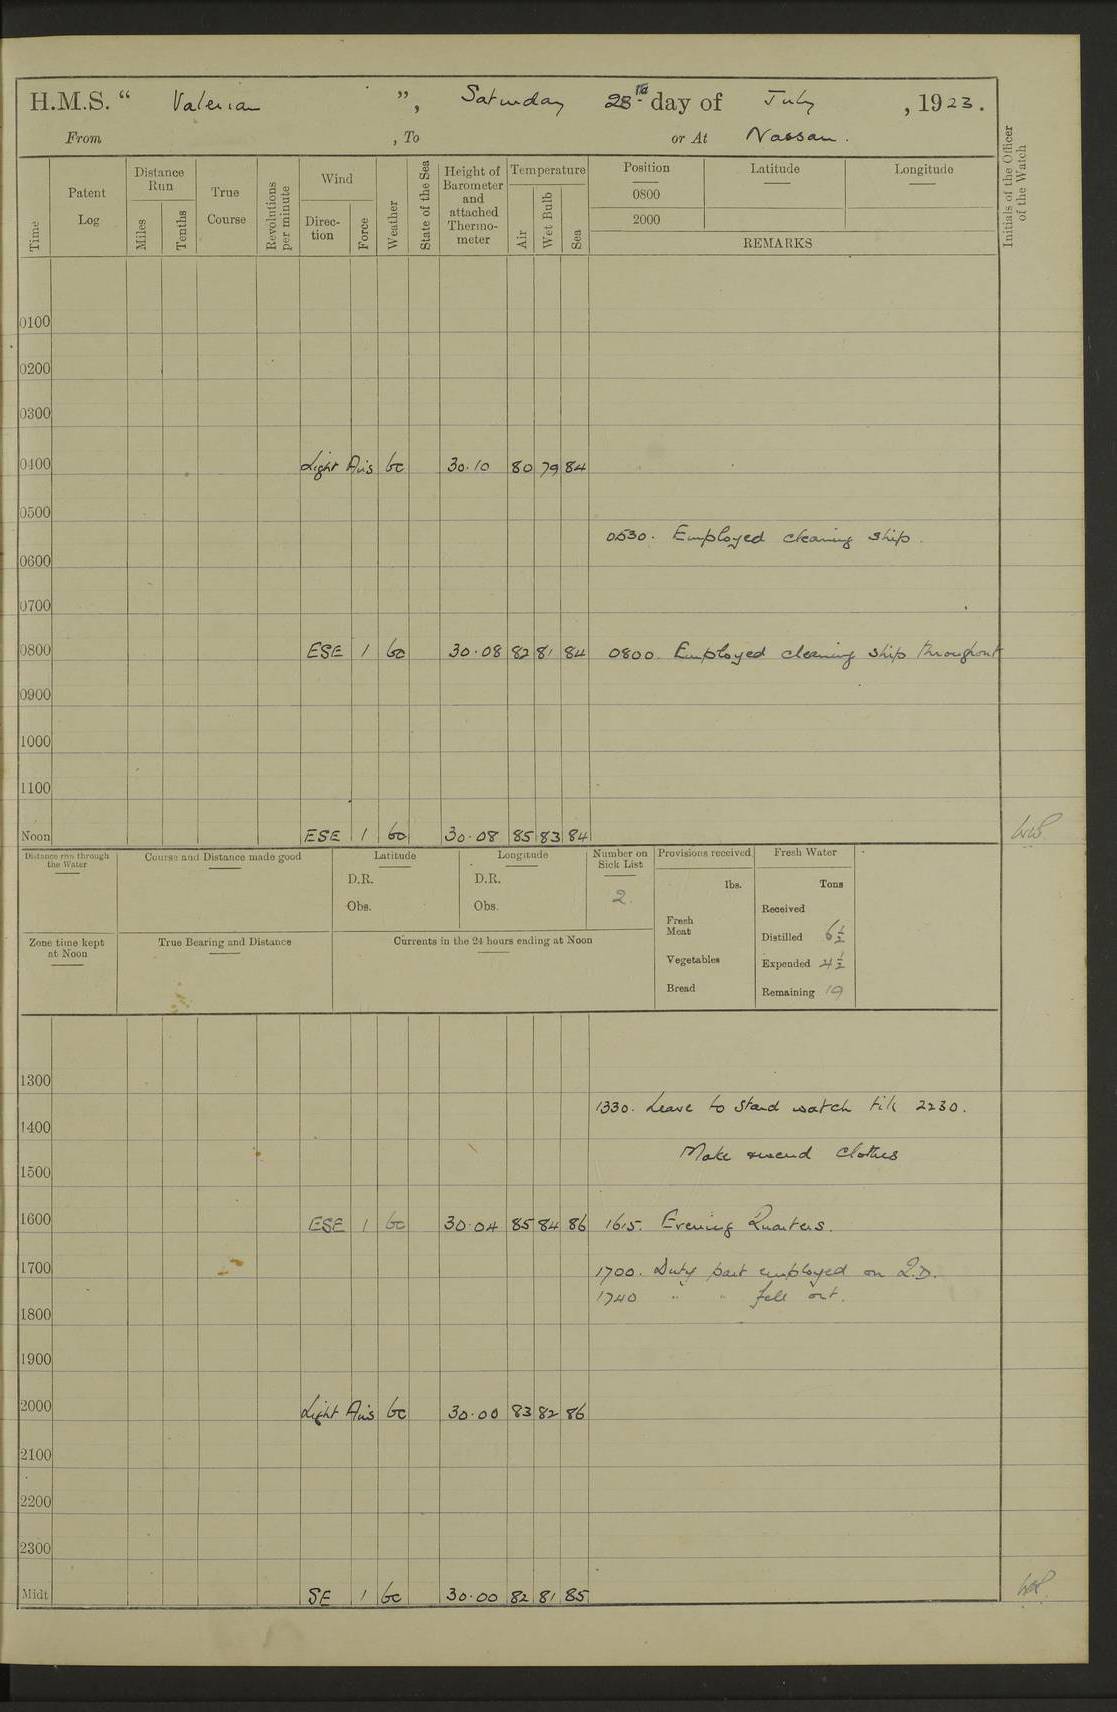 H.M.S. “ Valerian ”, Saturday 28th day of July , 1923.
From , To or At Nassau.
Time
Patent Log
Distance Run
Miles
Tenths
True Course
Revolutions per minute
Wind
Direction
Force
Weather
State of the Sea
Height of Barometer and attached Thermometer
Temperature
Air
Wet Bulb
Sea
Position Latitude Longitude
0800
2000
REMARKS
Initials of the Officer of the Watch
0100
0200
0300
0400 Light Airs bc 30.10 80 79 84
0500
0530. Employed cleaning ship.
0600
0700
0800 ESE 1 bc 30.08 82 81 84 0800. Employed cleaning ship throughout
0900
1000
1100
Noon ESE 1 bc 30.08 85 83 84
Distance run through the Water
Course and Distance made good
Latitude
D.R.
Obs.
Longitude
D.R.
Obs.
Number on Sick List
2.
Provisions received
lbs.
Fresh Meat
Vegetables
Bread
Fresh Water
Tons
Received
Distilled 6½
Expended 4½
Remaining 19
Zone time kept at Noon
True Bearing and Distance
Currents in the 24 hours ending at Noon
1300
1330. Leave to Stand watch till 2230.
1400
Make mend clothes
1500
1600 ESE 1 bc 30.04 85 84 86 1615. Evening Quarters.
1700 1700. Duty part employed on Q.D.
1740 " " fell out.
1800
1900
2000 Light Airs bc 30.00 83 82 86
2100
2200
2300
Midt. SE 1 bc 30.00 82 81 85